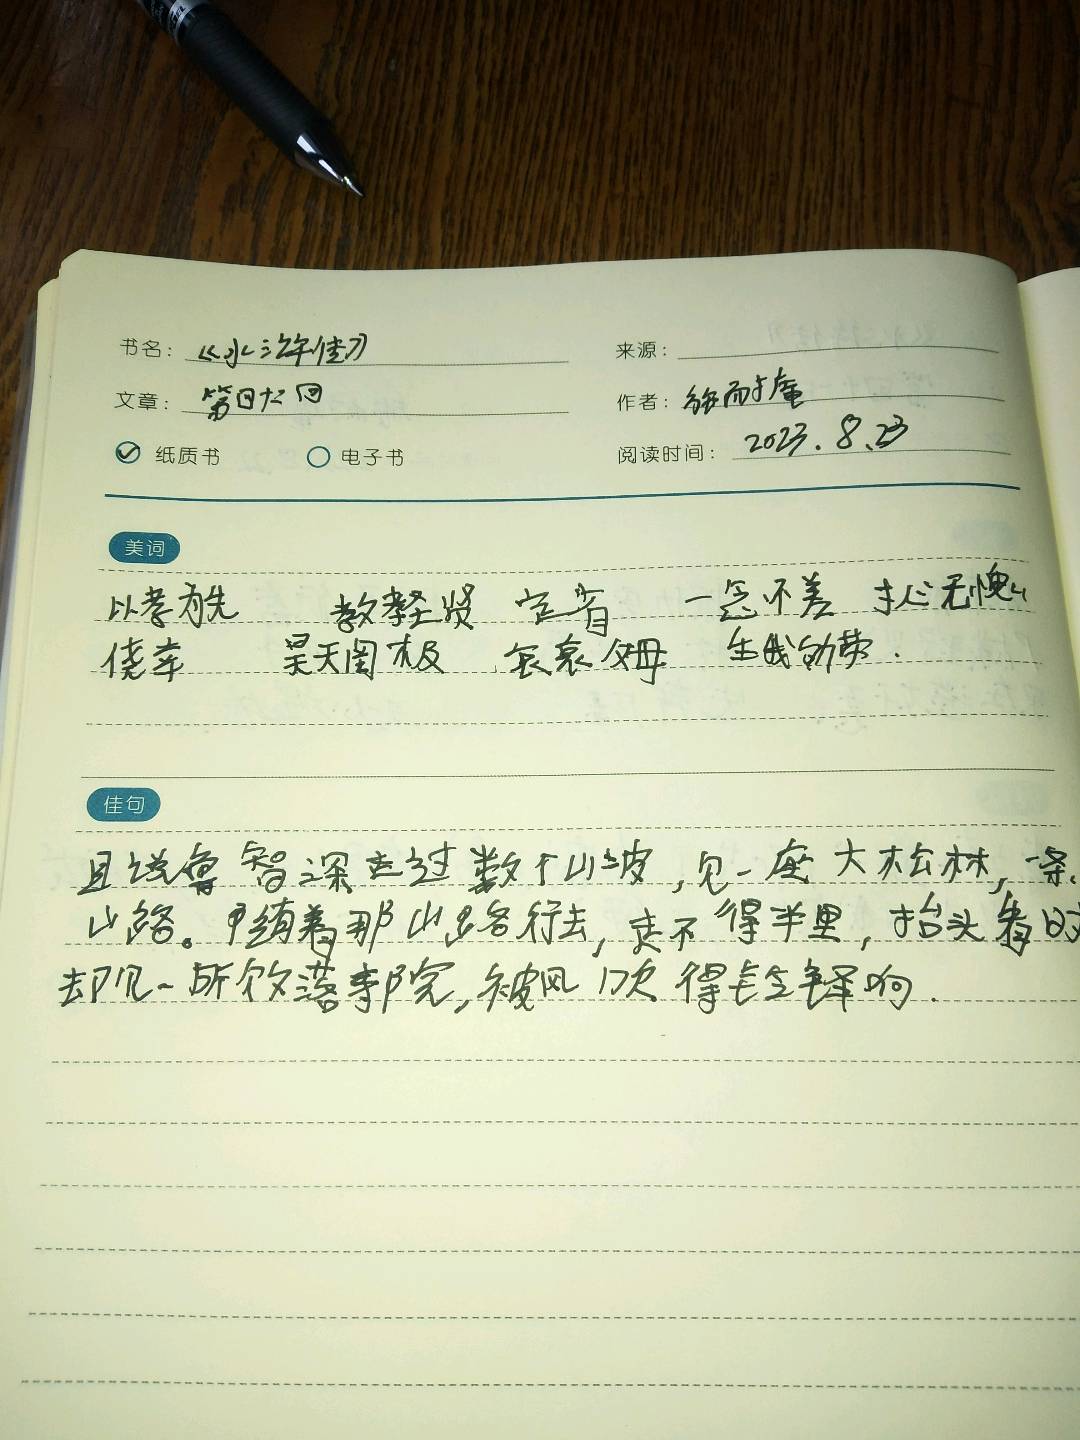 书名： 《水浒传》
来源：
文章： 第四十二回
作者： 施耐庵
纸质书 电子书
阅读时间： 2023.8.23
美词
以孝为先 教孝 贤 定省 一念不差 扪心无愧
侥幸 昊天罔极 哀哀父母 生我劬劳.
佳句
且说鲁智深走过数个山坡,见一座大松林,一条
山路。随着那山路行去,走不得半里,抬头看时
却见一所败落寺院,被风吹得铃铎响.